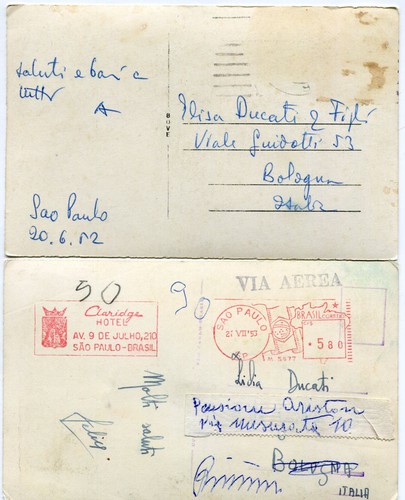 saluti e baci a
tutti
A
Sao Paulo
20.6.52
BOVE
Elisa Ducati & Figli
Viale Guidotti 53
Bologna
Italia
50
9
VIA AEREA
Claridge
HOTEL
AV. 9 DE JULHO, 210
SÃO PAULO-BRASIL
SAO PAULO
BRASIL CORREIO
580
Molti saluti
Lidia Ducati
Pensione Ariston
via Mesurata 10
BOLOGNA
ITALIA